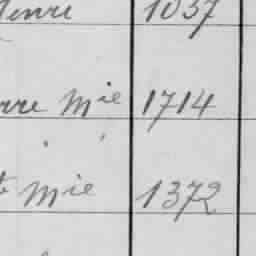 Henri 1037
rre Mie 1714
te Mie 1372